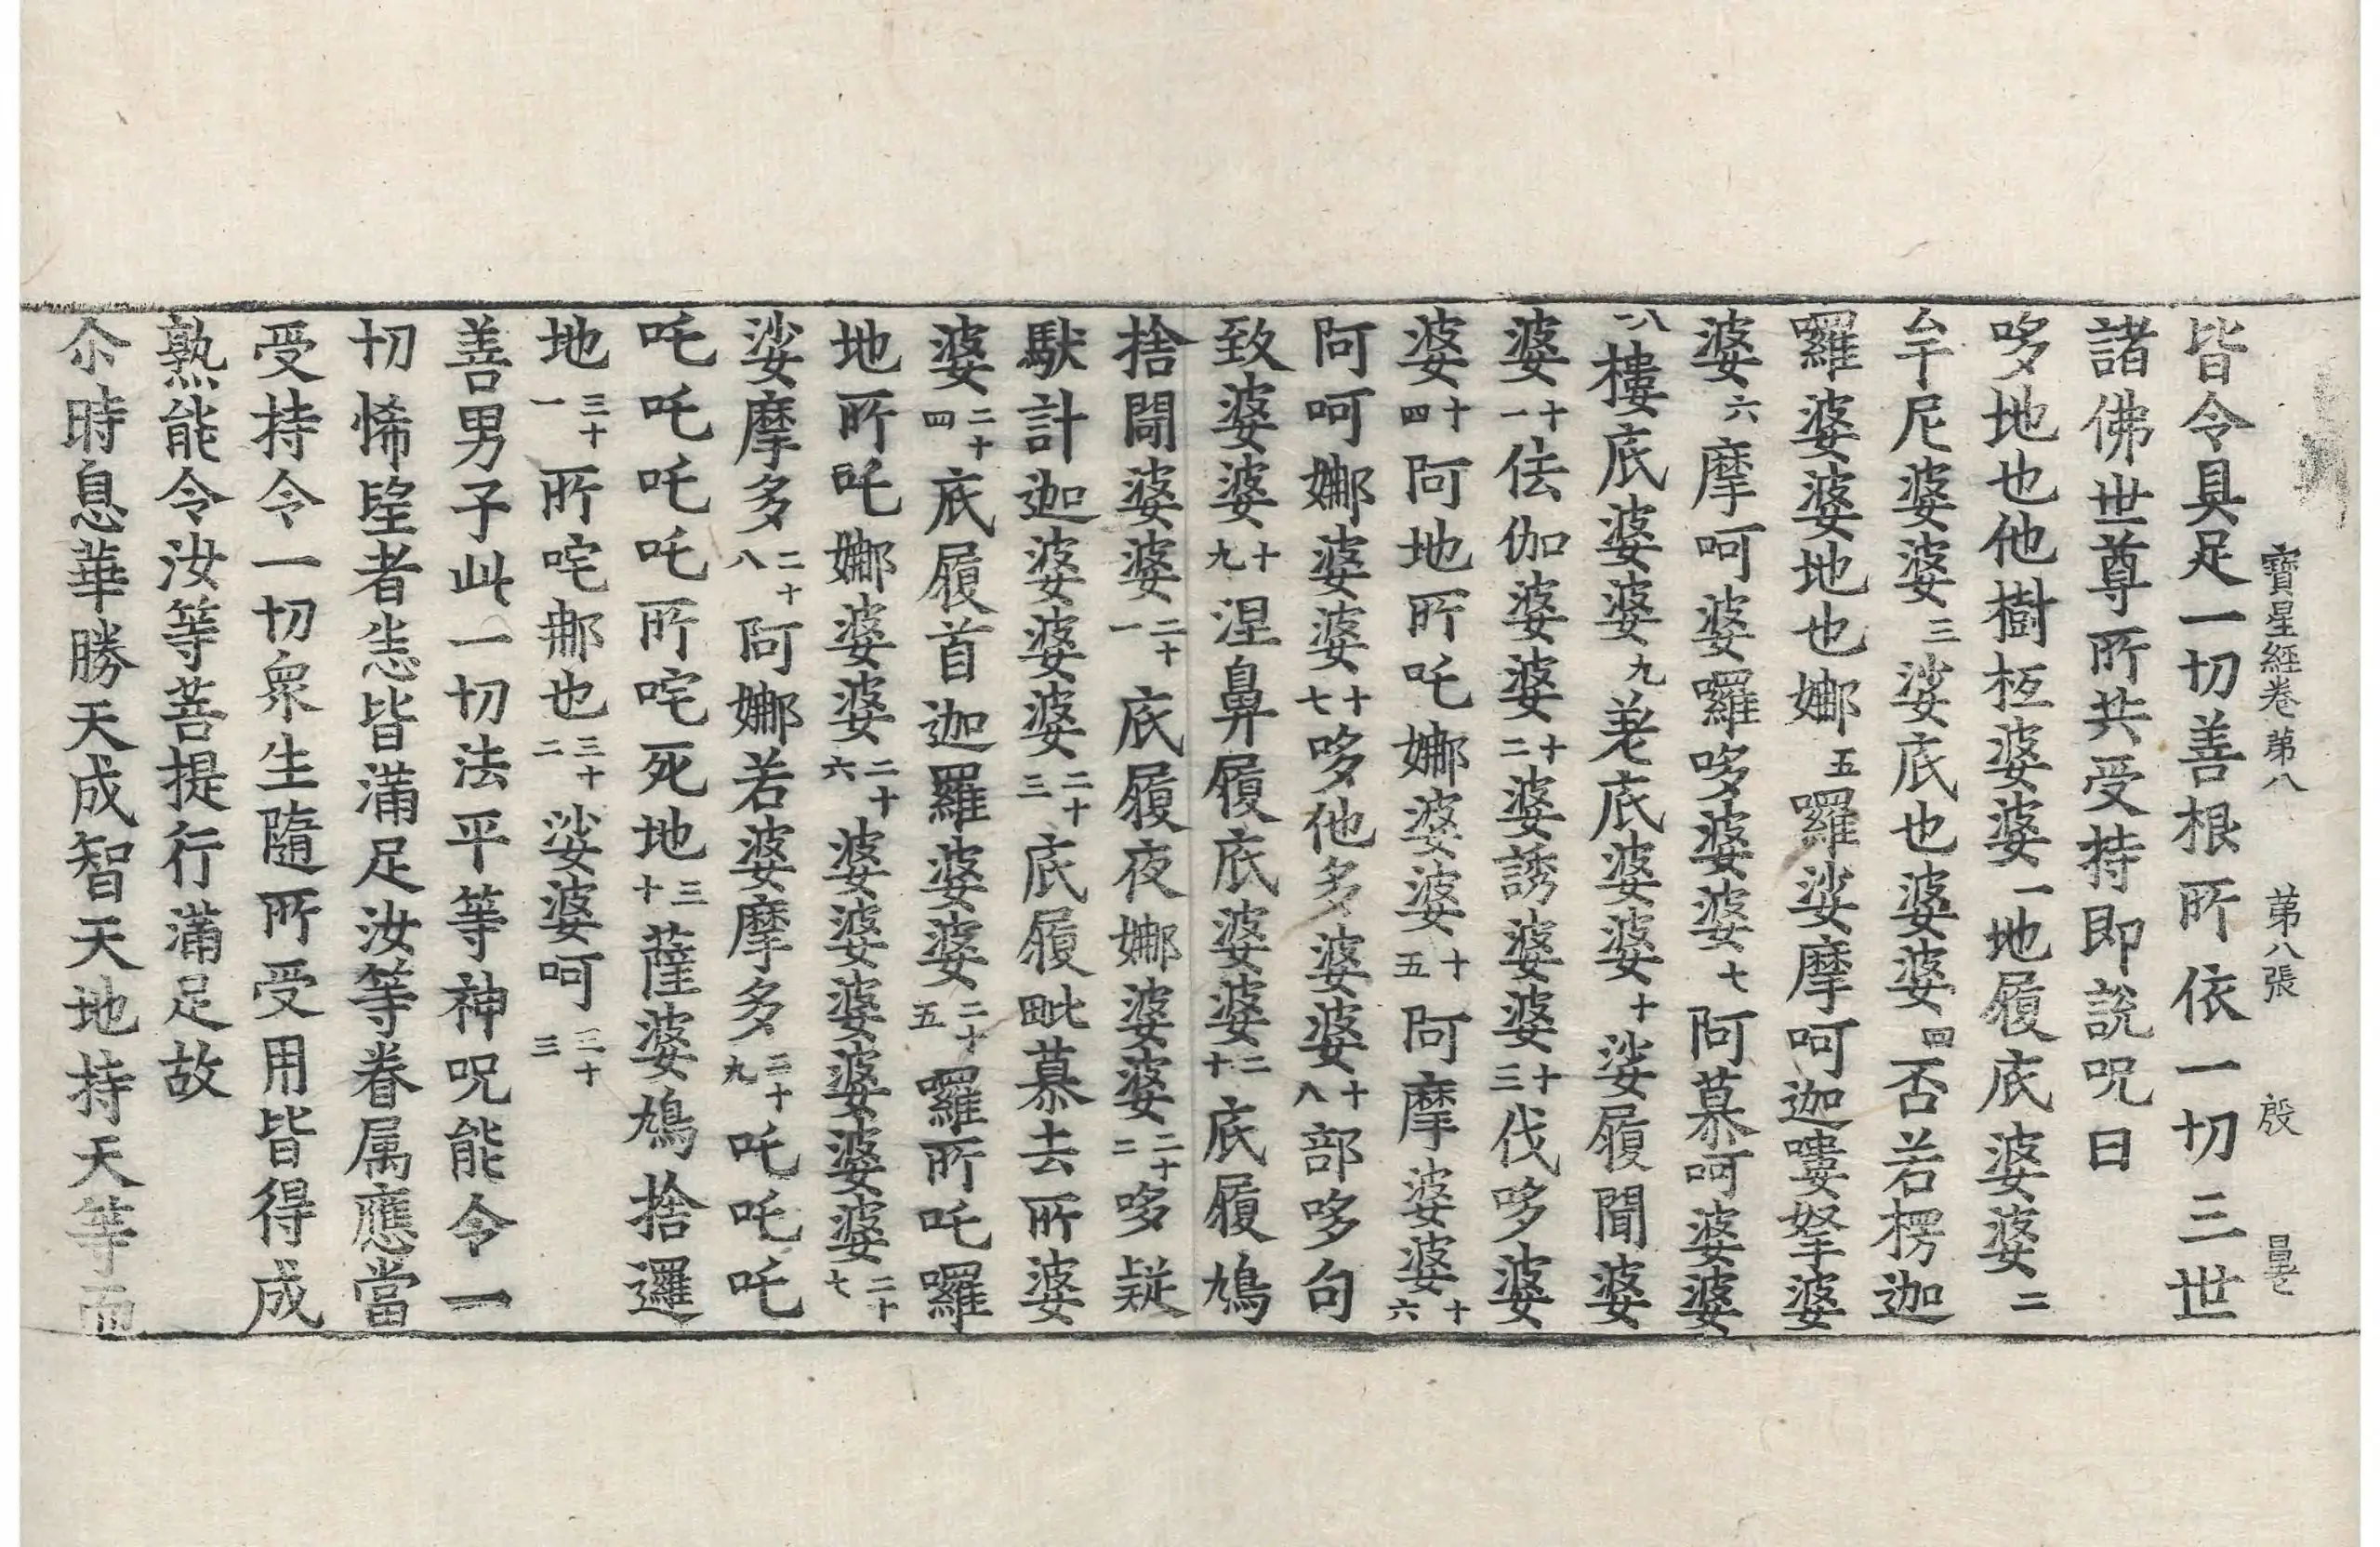 寶星經卷第八 第八張 殷
皆令具足一切善根所依一切三世
諸佛世尊所共受持即說呪曰
哆地也他樹柸婆婆一地履底婆婆二
牟尼婆婆三娑底也婆婆四否若楞迦
囉婆婆地也娜五囉娑摩呵迦嘍拏婆
婆六摩呵婆囉哆婆婆七阿慕呵婆婆
八樓底婆婆九耄底婆婆十娑履聞婆
婆十一佉伽婆婆十二婆誘婆婆十三伐哆婆
婆十四阿地所吒娜婆婆十五阿摩婆婆十六
阿呵娜婆婆十七哆他多婆婆十八部哆句
致婆婆十九涅鼻履底婆婆二十底履鳩
捨闍婆婆二十一底履夜娜婆婆二十二哆疑
馱計迦婆婆婆二十三底履毗慕去所婆
婆二十四底履首迦羅婆婆二十五囉所吒囉
地所吒娜婆婆二十六婆婆婆婆婆婆二十七
娑摩多二十八阿娜若婆摩多二十九吒吒吒
吒吒吒吒所咤死地三十薩婆鳩捨邏
地三十一所咤郍也三十二娑婆呵三十三
善男子此一切法平等神呪能令一
切悕望者恙皆滿足汝等眷属應當
受持令一切眾生隨所受用皆得成
熟能令汝等菩提行滿足故
尒時息華勝天成智天地持天等而